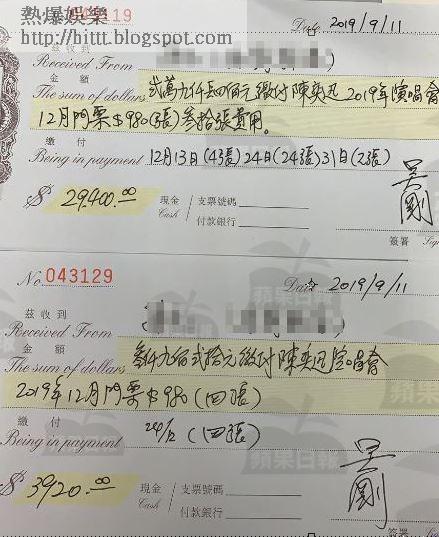 熱爆娛樂
http://hittt.blogspot.com
043119
Date 2019/9/11
茲收到
Received From
金額
The sum of dollars 弍萬九仟四佰元繳付陳奕迅2019年演唱會
12月門票$980(張)叁拾張費用。
繳付
Being in payment 12月13日(4張)24日(24張)31日(2張)
$ 29,400.00
現金 Cash
支票號碼
付款銀行
吳剛
簽署
No 043129
Date 2019/9/11
茲收到
Received From
金額
The sum of dollars 叁仟九佰弍拾元繳付陳奕迅演唱會
2019年12月門票$980(四張)
繳付
Being in payment 24/12 (四張)
$ 3920.00
現金 Cash
支票號碼
付款銀行
吳剛
簽署
蘋果日報
蘋果日報